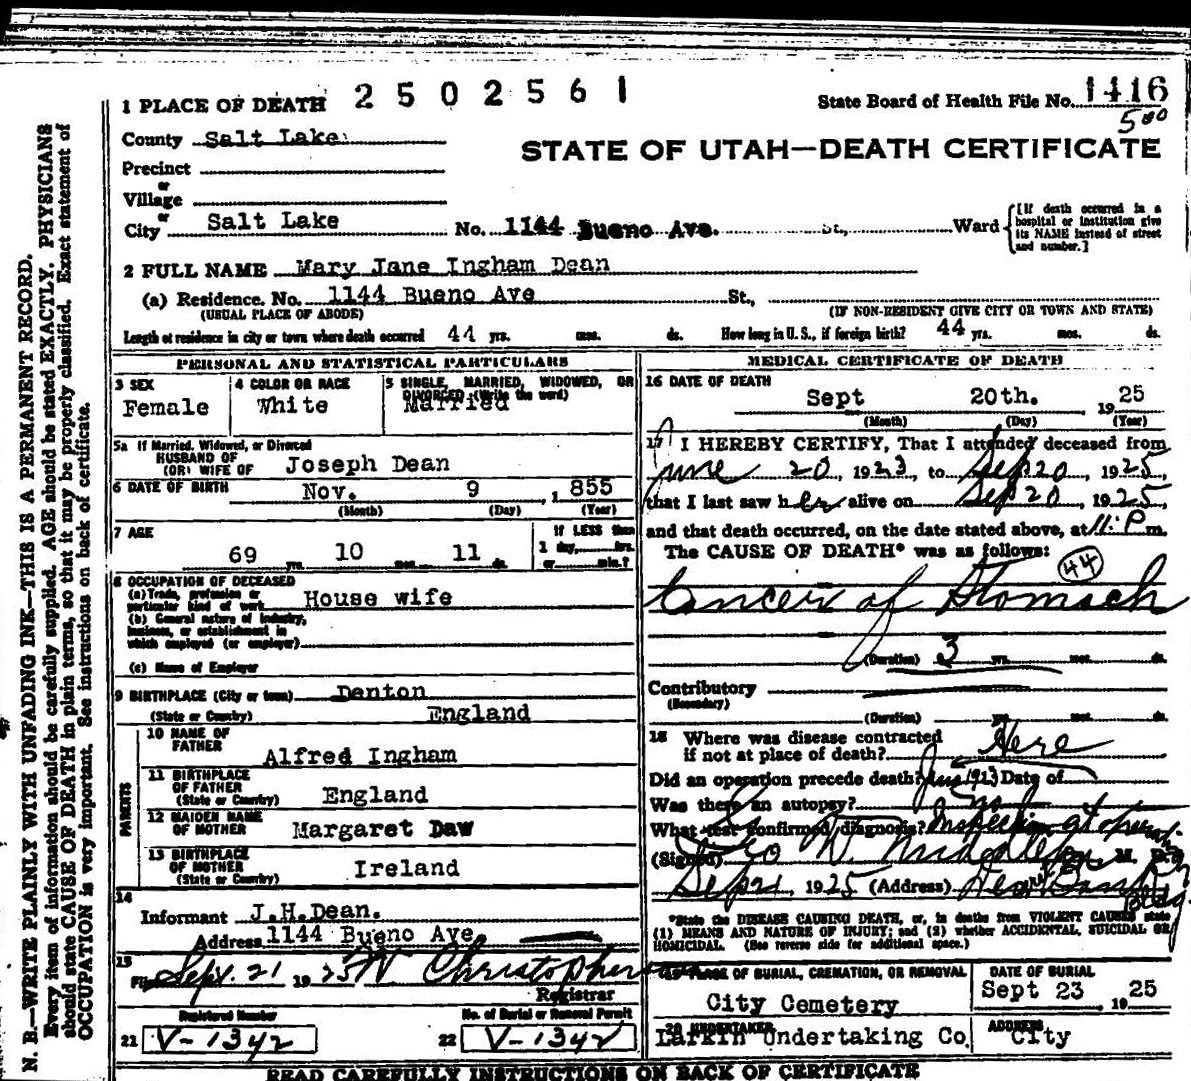 1 PLACE OF DEATH 2502561
State Board of Health File No. 1416
500
County Salt Lake
STATE OF UTAH—DEATH CERTIFICATE
Precinct
or
Village
or
City Salt Lake No. 1144 Bueno Ave. St., Ward
[If death occurred in a hospital or institution give its NAME instead of street and number.]
2 FULL NAME Mary Jane Ingham Dean
(a) Residence. No. 1144 Bueno Ave St.,
(USUAL PLACE OF ABODE) (IF NON-RESIDENT GIVE CITY OR TOWN AND STATE)
Length of residence in city or town where death occurred 44 yrs. mos. ds. How long in U. S., if foreign birth? 44 yrs. mos. ds.
PERSONAL AND STATISTICAL PARTICULARS
3 SEX Female
4 COLOR OR RACE White
5 SINGLE, MARRIED, WIDOWED, OR DIVORCED (Write the word) Married
5a If Married, Widowed, or Divorced
HUSBAND OF
(OR) WIFE OF Joseph Dean
6 DATE OF BIRTH Nov. 9, 1855
(Month) (Day) (Year)
7 AGE 69 yrs. 10 mos. 11 ds.
If LESS than
1 day, hrs.
or min.?
8 OCCUPATION OF DECEASED
(a) Trade, profession or
particular kind of work House wife
(b) General nature of industry,
business, or establishment in
which employed (or employer)
(c) Name of Employer
9 BIRTHPLACE (City or town) Denton
(State or Country) England
PARENTS
10 NAME OF
FATHER Alfred Ingham
11 BIRTHPLACE
OF FATHER
(State or Country) England
12 MAIDEN NAME
OF MOTHER Margaret Daw
13 BIRTHPLACE
OF MOTHER
(State or Country) Ireland
14
Informant J.H.Dean.
Address 1144 Bueno Ave
15
Filed Sept. 21 1925 W Christopherson
Registrar
Registered Number
21 V-1342
No. of Burial or Removal Permit
22 V-1342
MEDICAL CERTIFICATE OF DEATH
16 DATE OF DEATH
Sept 20th. 1925
(Month) (Day) (Year)
17 I HEREBY CERTIFY, That I attended deceased from
June 20, 1923, to Sep 20, 1925,
that I last saw her alive on Sep 20, 1925,
and that death occurred, on the date stated above, at 11: P m.
The CAUSE OF DEATH* was as follows:
44
Cancer of Stomach
(Duration) 3 yrs. mos. ds.
Contributory
(Secondary)
(Duration) yrs. mos. ds.
18 Where was disease contracted
if not at place of death? Here
Did an operation precede death? 1923 Date of
Was there an autopsy? no
What test confirmed diagnosis? Inspection at operat.
(Signed) Geo W. Middleton, M. D.
Sep 21, 1925 (Address) Deseret Bank Bldg.
*State the DISEASE CAUSING DEATH, or, in deaths from VIOLENT CAUSES state
(1) MEANS AND NATURE OF INJURY; and (2) whether ACCIDENTAL, SUICIDAL OR
HOMICIDAL. (See reverse side for additional space.)
19 PLACE OF BURIAL, CREMATION, OR REMOVAL
City Cemetery
DATE OF BURIAL
Sept 23, 1925
20 UNDERTAKER
Larkin Undertaking Co.
ADDRESS
City
READ CAREFULLY INSTRUCTIONS ON BACK OF CERTIFICATE
N. B.—WRITE PLAINLY WITH UNFADING INK—THIS IS A PERMANENT RECORD.
Every item of information should be carefully supplied. AGE should be stated EXACTLY. PHYSICIANS
should state CAUSE OF DEATH in plain terms, so that it may be properly classified. Exact statement of
OCCUPATION is very important. See instructions on back of certificate.